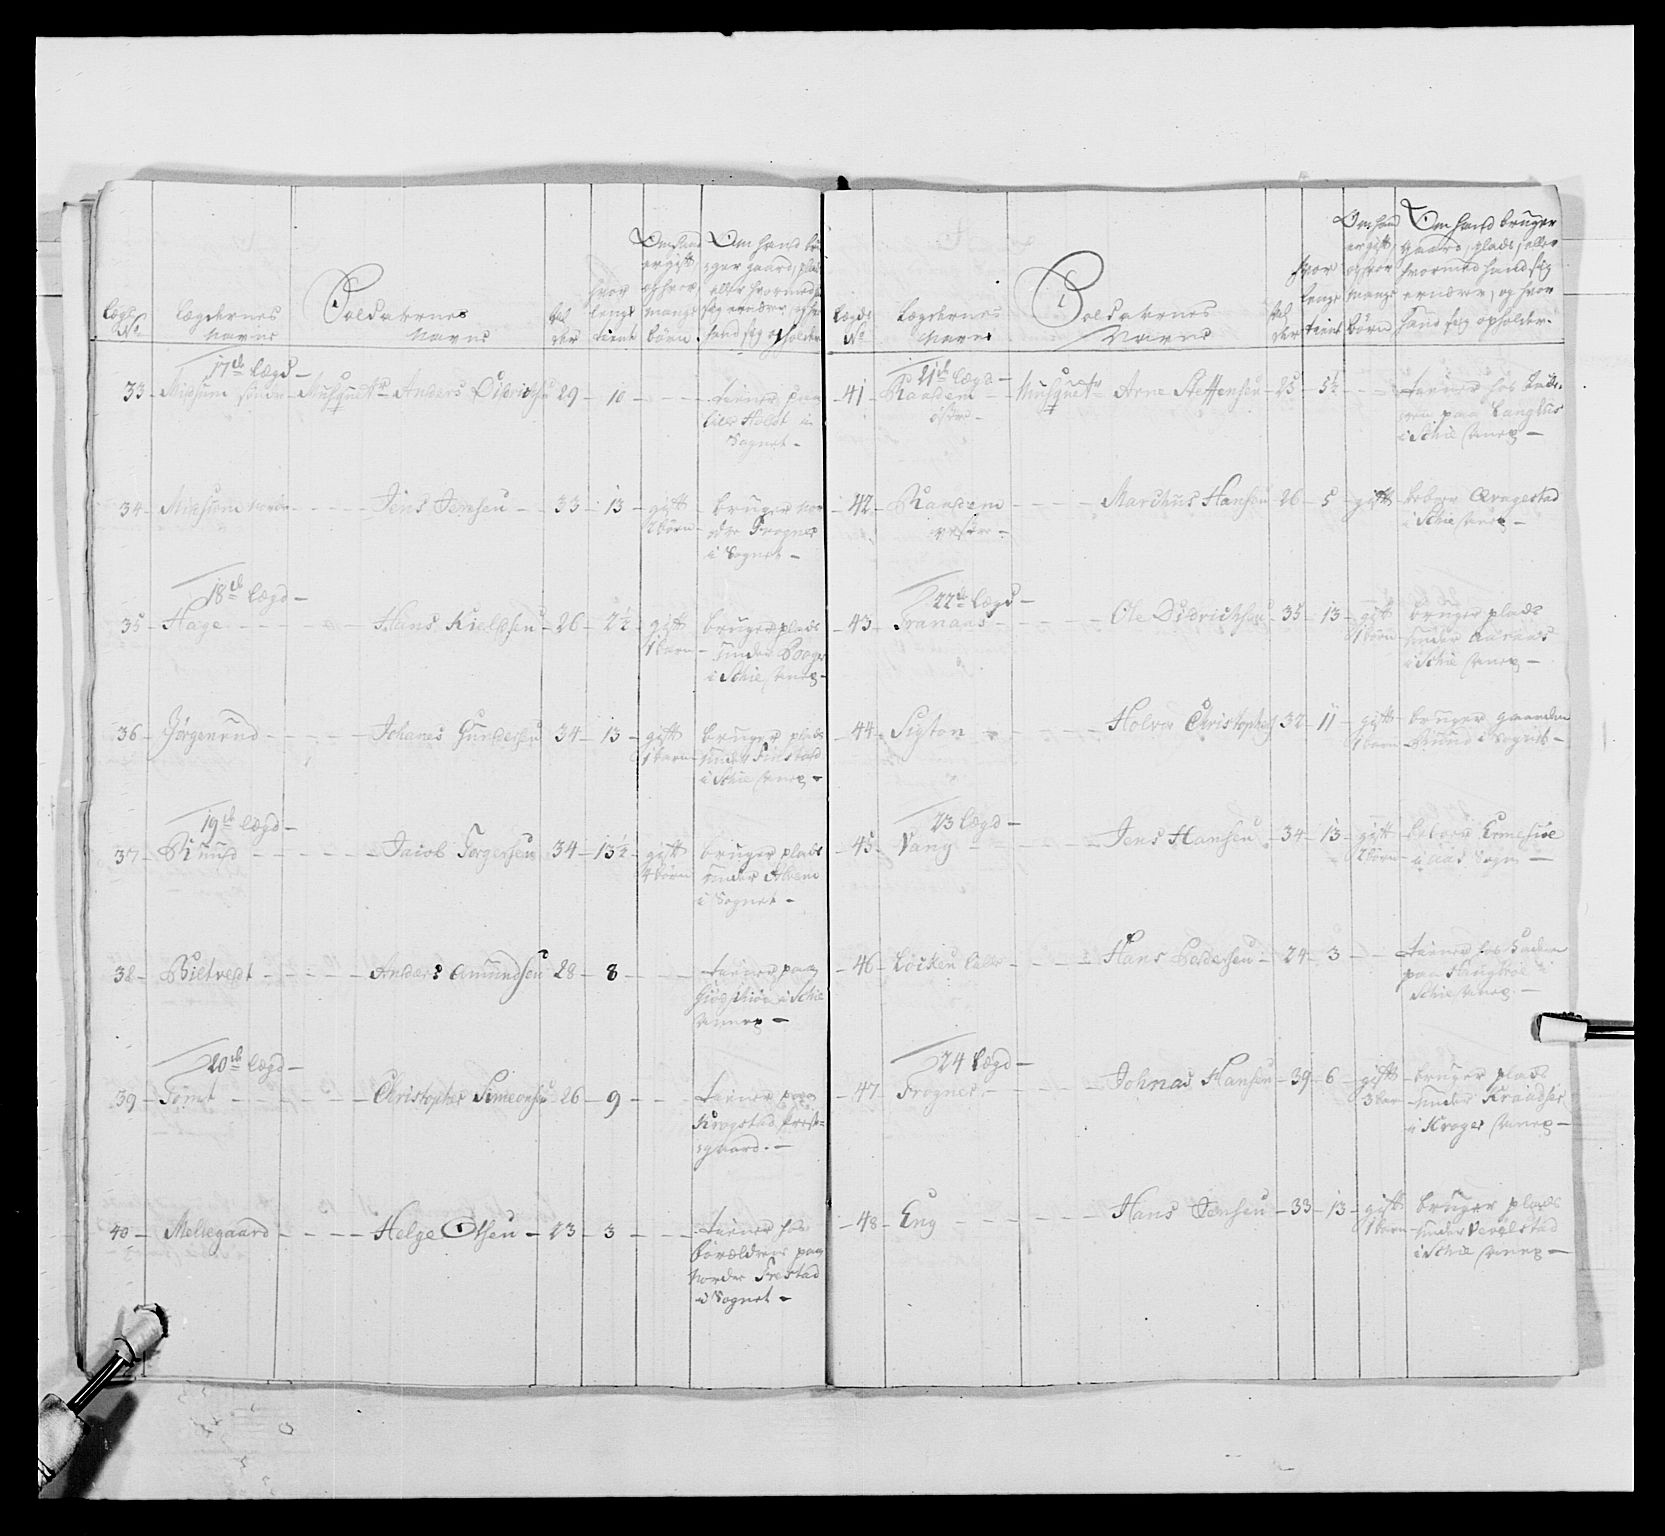 Lægs No
Lægdernes Navne
Soldaternes Navne
Al der
hvor lenge tient
Om hand er gift, og hvor mange børn
Om hand bruger gaard, plads eller hvormed sig ernærer, og hvor hand sig opholder
17de Lægd
33 - Midsum søndre - Musquetr Anders Didrichsen 29 - 10 - - - tiener paa
Holst i
Sognet -
34 - Midsum nordre - - - Jens Jensen - 33 - 13 - gift 2 børn - bruger nor
dre Frogner
i Sognet -
18de Lægd -
35 - Hage - - - Hans Kieldsen - 26 - 2½ - gift 1 barn - bruger plads
under
i Schie Anex -
36 - Jørgenrud - - - Johanes Gundersen 34 - 13 - gift 1 barn - bruger plads
under Finstad
i Schie Anex -
19de Lægd -
37 - Ruud - - - Jacob Torgersen 34 - 13½ - gift 4 børn - bruger plads
under
i Sognet -
38 - Bietvedt - - - Anders Amundsen 28 - 8 - - - tiener paa
i Schie
Annex -
20de Lægd -
39 - Tomt - - - Christopher Simonsen 26 - 9 - - - tiener paa
Krogstad Præste-
gaard. -
40 - Mellegaard - - - Helge Olsen - 23 - 3 - - - tiener hos
forældrene paa
Nordre Frestad
i Sognet -
Lægds No
Lægdernes Navne
Soldaternes Navne
Al der
hvor lenge tient
Om hand er gift, og hvor mange børn
Om hand bruger gaard, plads, eller hvormed hand sig ernærer, og hvor hand sig opholder.
21de Lægd -
41 - Raasdem østre - Musquetr Arne Steffensen - 25 - 5½ - - tiener hos Fade-
ren paa Langhus
i Schie Anex -
42 - Raasdem vestre - - - - Marchus Hansen 26 - 5 - gift - beboer Ængestad
i Schie Anex -
22de Lægd -
43 - Tranaas - - - Ole Didrichsen - 35 - 13 - gift 1 børn - bruger plads
under Aaraas
i Schie Anex -
44 - Sigton - - - Holvor Christophers 32 - 11 - gift 1 barn - bruger gaarden
Ruud i Sognet -
23 Lægd -
45 - Vang - - - Jens Hansen - 34 - 13 - gift 2 børn - beboer
i Aas Sogn -
46 - Løcken - - - Hans Pedersen - 24 - 3 - - tiener hos Faderen
paa
Schie Anex -
24 Lægd -
47 - Frogner - - - Johnas Hansen - 39 - 6 - gift 3 bar - bruger plads
under
i Kroger Anex -
48 - Eng - - - Hans Jensen - 33 - 13 - gift 1 barn - bruger plads
under Vevelstad
i Schie Anex -